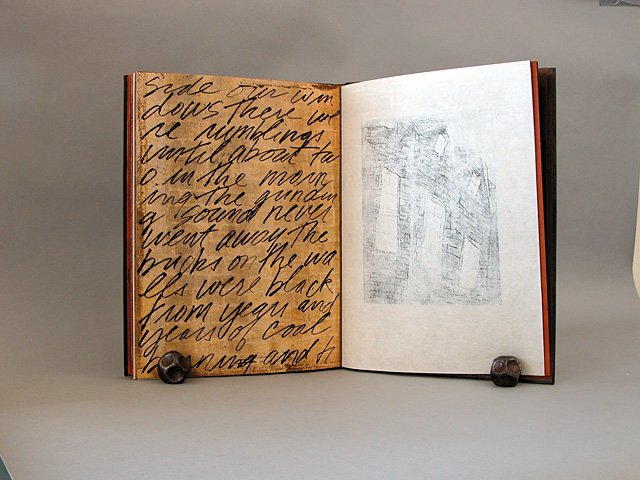 side our win
dows there we
re rumblings
until about tw
o in the morn
ing the grindin
g sound never
went away the
bricks on the wa
lls were black
from years and
years of coal
burning and ti